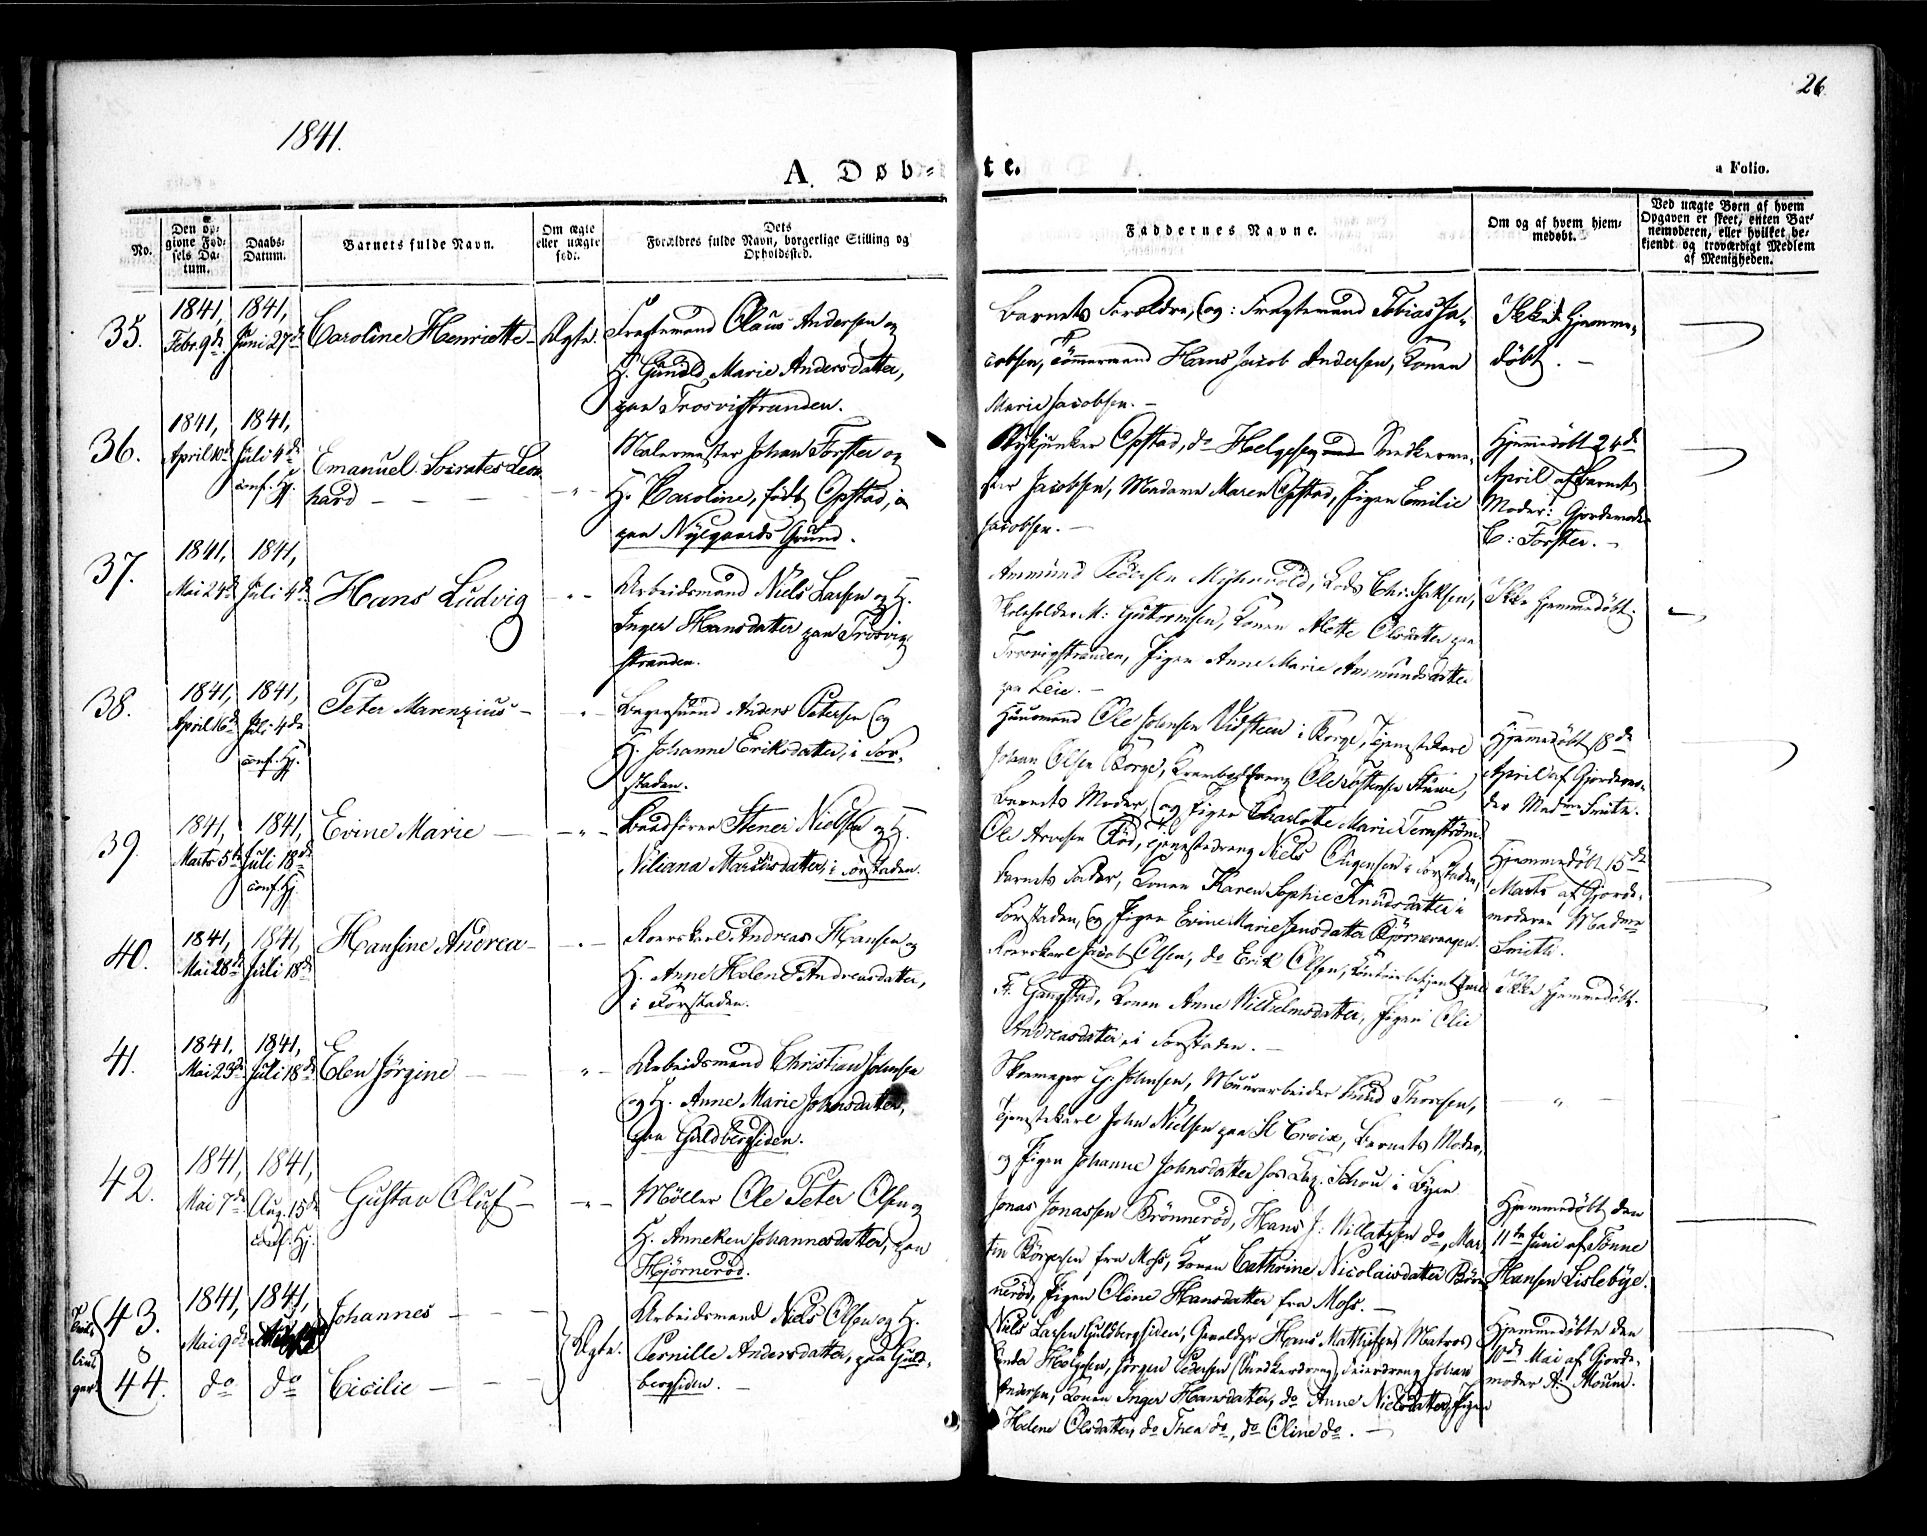 26.
1841.
A. Døb-te.
a Folio.
No.
Den op-
givne Fød-
sels Da-
tum.
Daabs-
Datum.
Barnets fulde Navn.
Om ægte
eller uægte
født.
Dets
Forældres fulde Navn, borgerlige Stilling og
Opholdssted.
Faddernes Navne.
Om og af hvem hjem-
medøbt.
Ved uægte Børn af hvem
Opgaven er skeet, enten Bar-
nemoderen, eller hvilket be-
kjendt og troværdigt Medlem
af Menigheden.
35.
1841,
Febr. 9de
1841,
Juni 27de
Caroline Henriette -
Ægte.
Fragtemand Claus Andersen og
H. Gunild Marie Andersdatter,
paa Trosvigstranden.
Barnets Forældre, og: Fragtemand Tobias Ja-
cobsen, Tømmermand Hans Jacob Andersen, Konen
Marie Jacobsen. -
Ikke Hjemme-
døbt. -
36.
1841,
April 10de
1841,
Juli 4de
conf. Hj.
Emanuel Socrates Leon
hard -
- " -
Malermester Johan Forster og
H. Caroline, født Opstad,
paa Nygaards Grund.
Opstad, do Helgesen Snedkerme-
ster Jacobsen, Madame Maren Opstad, Pigen Emilie
Jacobsen. -
Hjemmedøbt 24de
April af Barnets
Moder: Gjordemoder
C: Forster. -
37.
1841,
Mai 24de
1841,
Juli 4de
Hans Ludvig
- " -
Arbeidsmand Niels Larsen og H.
Inger Hansdatter paa Trosvig-
stranden.
Ammund Pedersen Myhrvold, Lods Chr: Isaksen,
Skoleholder M: Guttormsen, Konen Alette Olsdatter paa
Trosvigstranden, Pigen Anne Marie Ammundsdatter
paa Leie. -
Ikke Hjemmedøbt.
38.
1841,
April 16de
1841,
Juli 4de
conf. Hj.
Peter Marenzius -
- " -
Bagersvend Anders Petersen og
H. Johanne Eriksdatter, i For-
staden.
Huusmand Ole Johnsen Vidsteen i Borge, Tjenestekarl
Johan Olsen Borge, Krambodsvend Ole
Barnets Moder, og Pigen Charlotte Marie Ternstrøm.
Hjemmedøbt 18de
April af Gjordemo-
der Madme Smith.
39.
1841,
Marts 5te
1841,
Juli 18de
conf. Hj.
Evine Marie -
- " -
Baadfører Stener Nielsen og H.
Niliana Marcusdatter, i Forstaden.
Ole Arvesen Rød, Tjenestedreng Niels i Forstaden,
Barnets Fader, Konen Karen Sophie Knudsdatter i
Forstaden, og Pigen Evine Marie Jensdatter Bjørnevangen.
Hjemmedøbt 15de
Marts af Gjorde-
moderen Madme
Smith.
40.
1841,
Mai 28de
1841,
Juli 18de
Hansine Andrea -
- " -
Roerskarl Andreas Hansen og
H. Anne Helene Andreasdatter,
i Forstaden.
Roerskarl Jacob Olsen, do Erik Olsen,
Fr. Gangstad, Konen Anne Wilhelmsdatter, Pigen Olie
Andreasdatter, i Forstaden. -
Ikke Hjemmedøbt.
41.
1841,
Mai 23de
1841,
Juli 18de
Elen Jørgine
" -
Arbeidsmand Christian Johnsen
og H. Anne Marie Johnsdatter,
paa Guldbergsiden.
Skomager G. Johnsen, Muurarbeider Knud Thorsen,
Tjenestekarl John Nielsen paa St Croix, Barnets Moder,
og Pigen Johanne Johnsdatter hos Schou i Byen
- " -
42.
1841,
Mai 7de
1841,
Aug. 15de
conf. Hj.
Gustav Oluf -
- " -
Møller Ole Peter Olsen og
H. Anneken Johannesdatter, paa
Hjørnerød.
Jonas Jonassen Brønnerød, Hans J: Willatzen do, Mar-
tin Børgesen fra Moss, Konen Cathrine Nicolaisdatter Brøn-
nerød, Pigen Oline Hansdatter fra Moss. -
Hjemmedøbt den
11te Juni af Tønne
Hansen Lislebye.
43.
&
44.
1841,
Mai 9de
do
1841,
do
Johannes -
Cicilie -
Ægte.
Arbeidsmand Niels Olsen og H.
Pernille Andersdatter, paa Guld-
bergsiden. -
Niels Larsen Guldbergsiden, Hans Mathisen, Matros
Helgesen, Jørgen Pedersen (Snedkerdreng), Johan
Andersen, Konen Inger Hansdatter, do Anne Nielsdatter, Pigen
Helene Olsdatter, do Thea do, do Oline do. -
Hjemmedøbte den
10de Mai af Gjorde-
moder A. Moum.